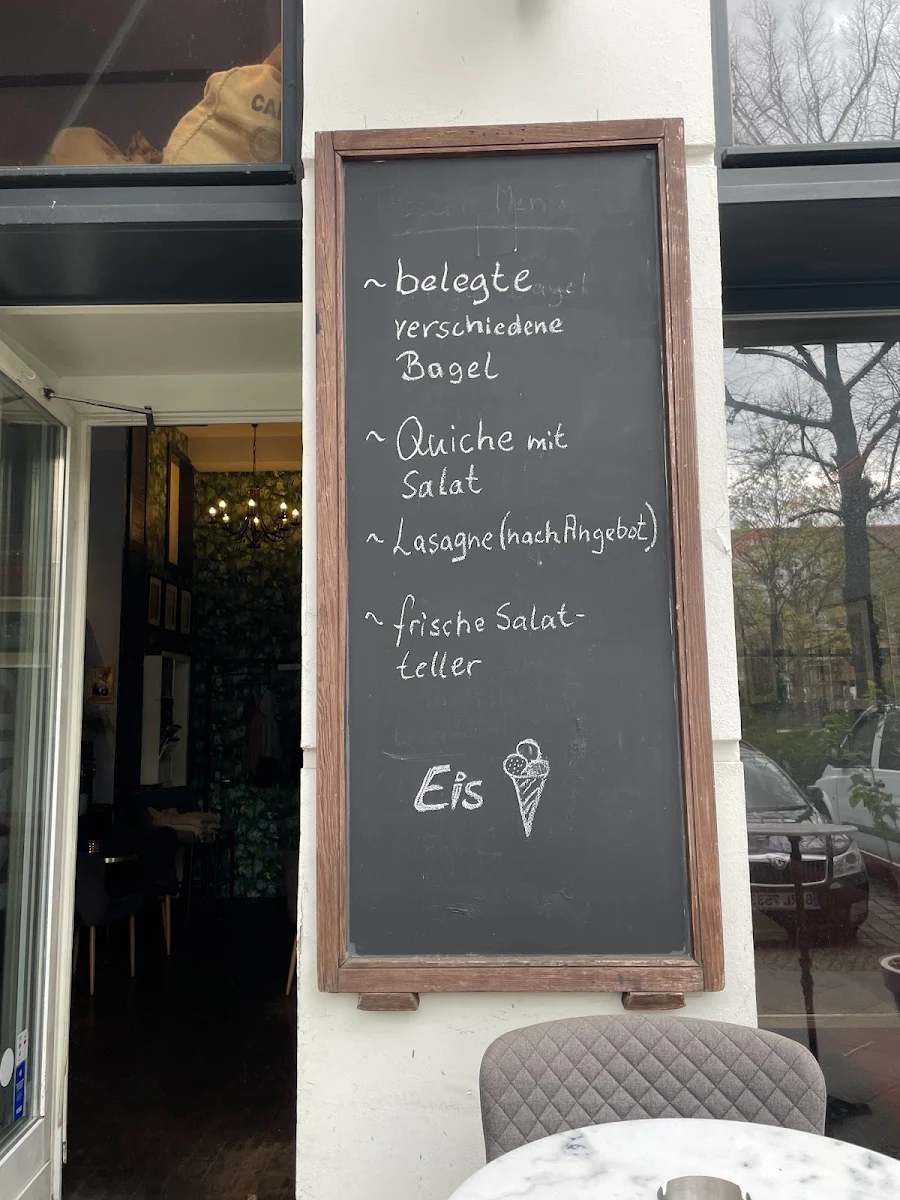 CA
Menü
~ belegte
verschiedene
Bagel
~ Quiche mit
Salat
~ Lasagne (nach Angebot)
~ frische Salat-
teller
Eis